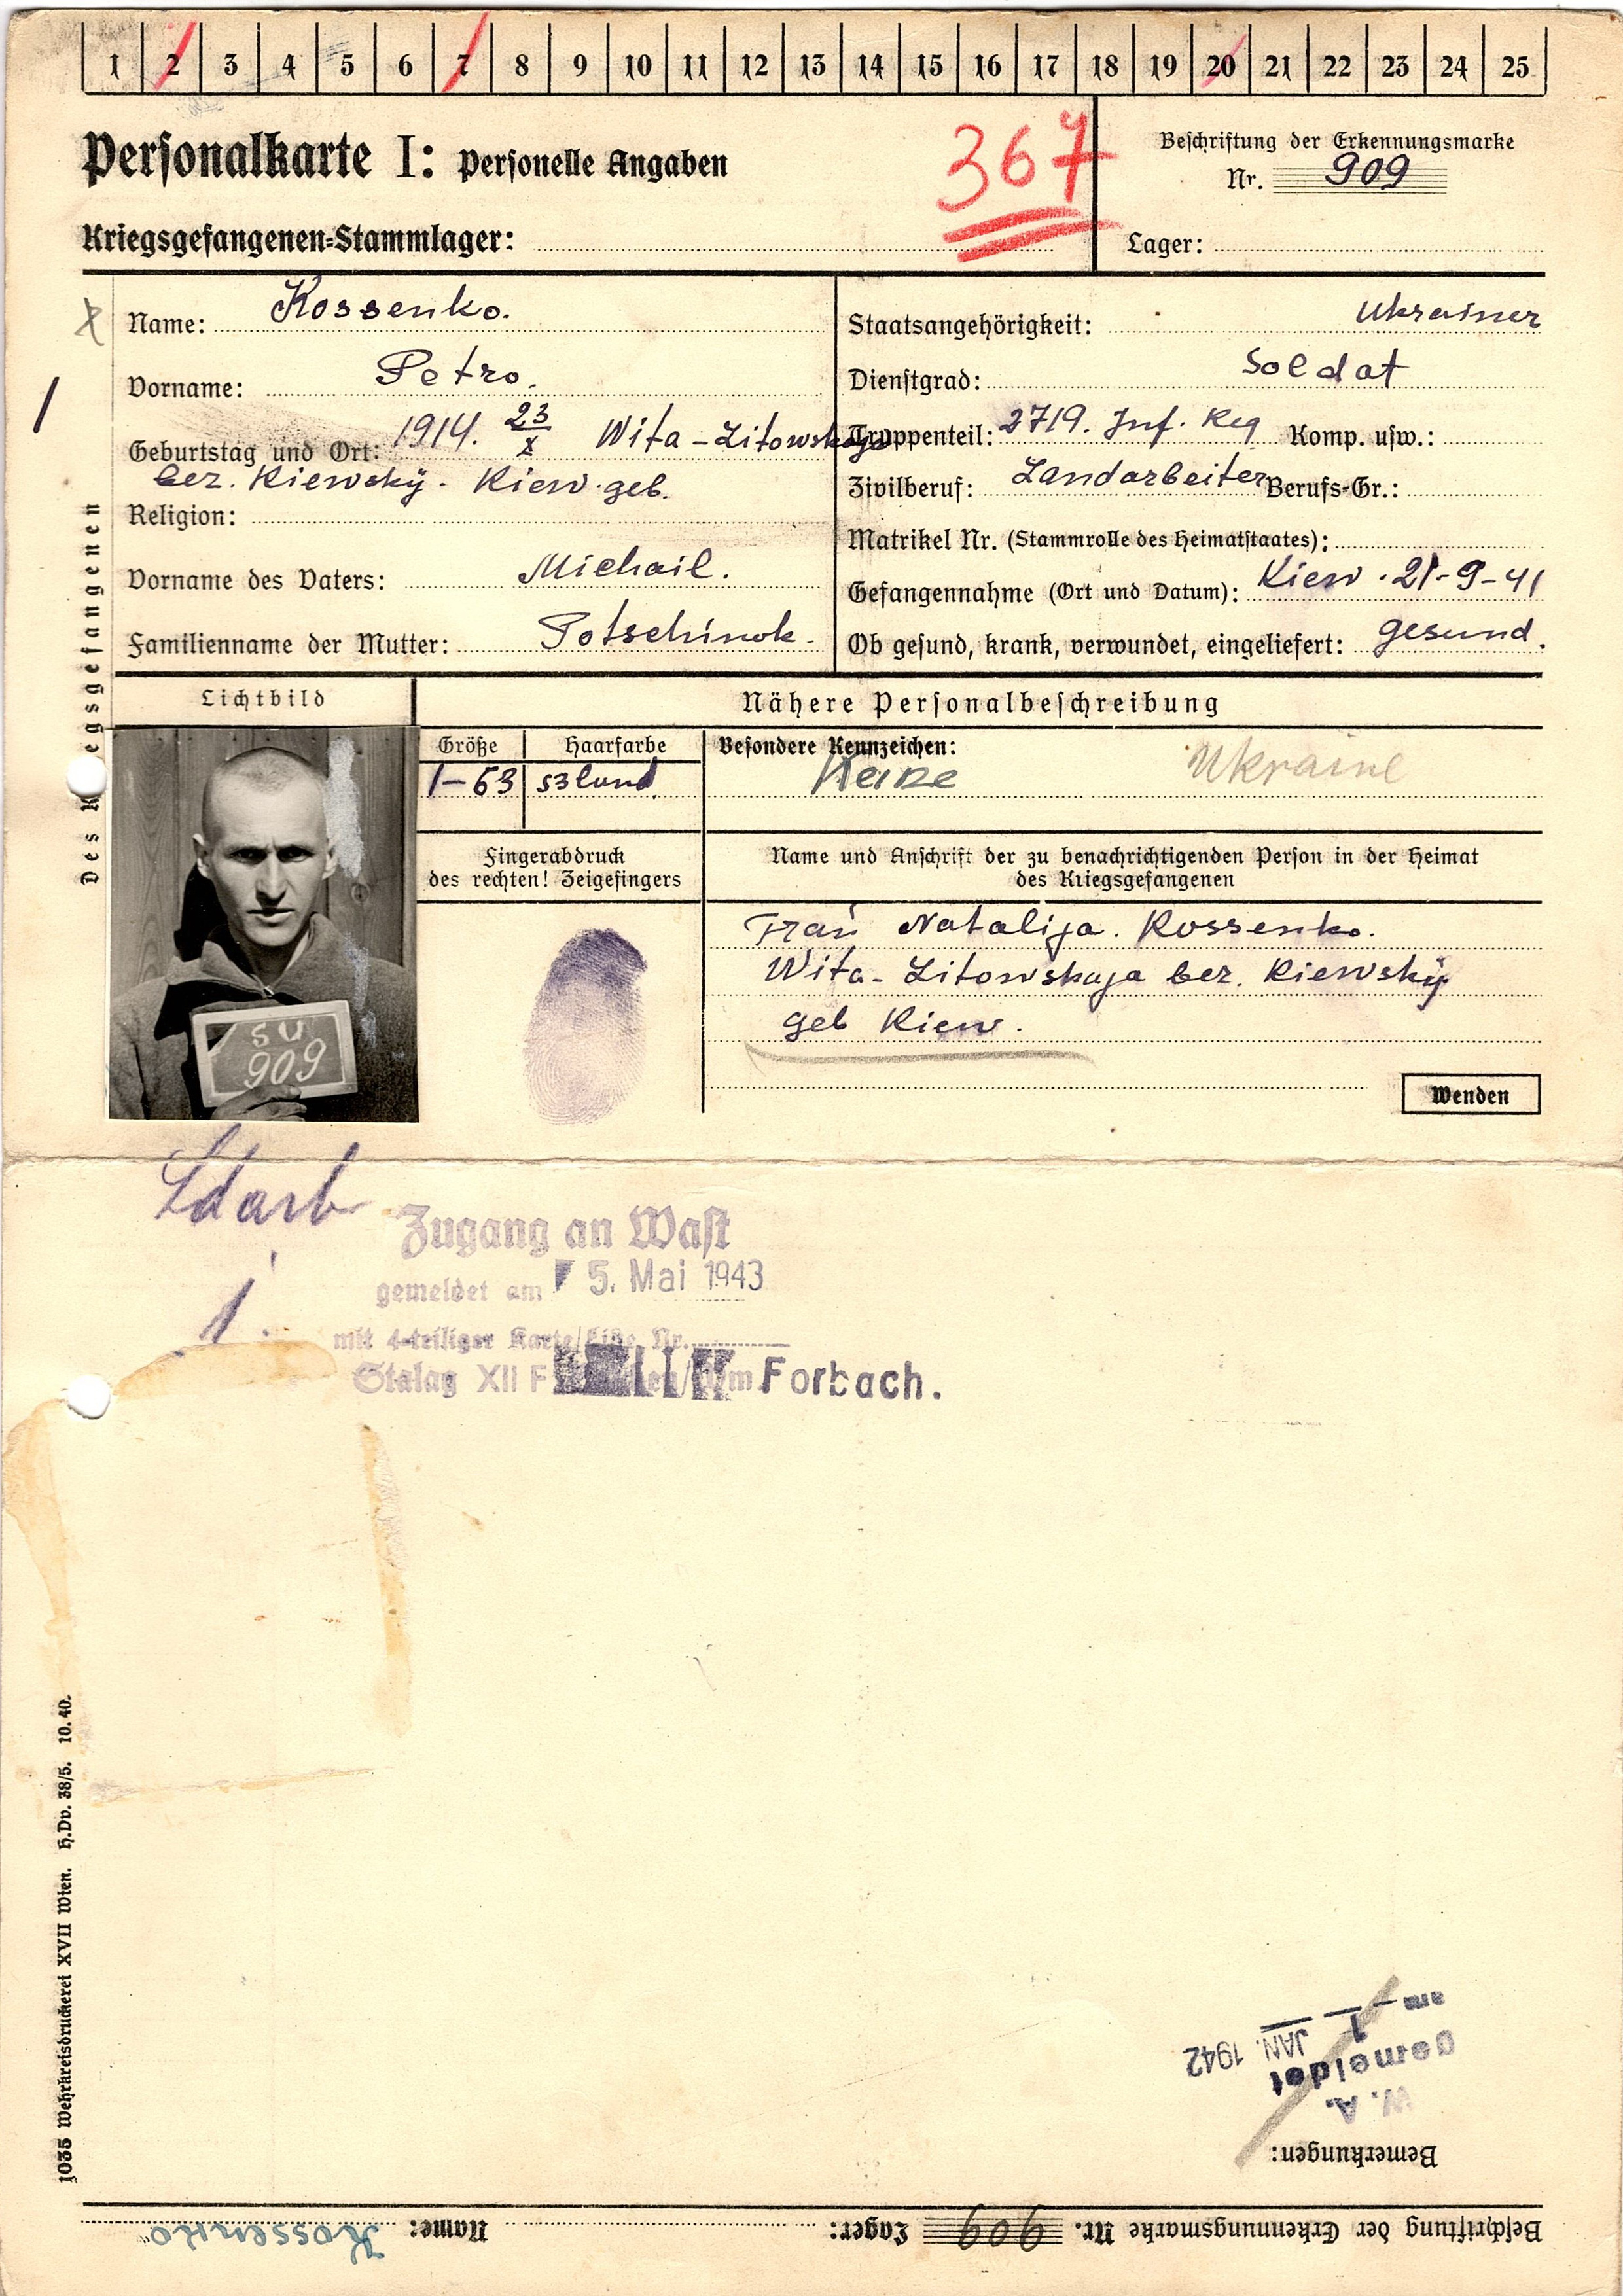 1 2 3 4 5 6 7 8 9 10 11 12 13 14 15 16 17 18 19 20 21 22 23 24 25
Personalkarte I: Personelle Angaben
367
Beschriftung der Erkennungsmarke
Nr. 909
Kriegsgefangenen=Stammlager:
Lager:
Des Kriegsgefangenen
Name: Kossenko.
Vorname: Petro.
Geburtstag und Ort: 1914. 23/X Wita-Litowskaja
bez. Kiewskÿ. Kiew. geb.
Religion:
Vorname des Vaters: Michail.
Familienname der Mutter: Potschinok.
Staatsangehörigkeit: Ukrainer
Dienstgrad: Soldat
Truppenteil: 2719. Inf. Reg Komp. usw.:
Zivilberuf: Landarbeiter Berufs=Gr.:
Matrikel Nr. (Stammrolle des Heimatstaates):
Gefangennahme (Ort und Datum): Kiew. 21-9-41
Ob gesund, krank, verwundet, eingeliefert: gesund.
Lichtbild
Nähere Personalbeschreibung
Größe
1-63
Haarfarbe
Besondere Kennzeichen:
Keine
Ukraine
Fingerabdruck
des rechten! Zeigefingers
Name und Anschrift der zu benachrichtigenden Person in der Heimat
des Kriegsgefangenen
Frau Natalija. Kossenko.
Wita-Litowskaja bez. Kiewskÿ
geb Kiew.
Wenden
SU
909
Ldarb
1.
Zugang an Wast
gemeldet am 5. Mai 1943
mit 4-teiliger Karte/Liste Nr.
Stalag XII F Forbach.
1035 Wehrkreisdruckerei XVII Wien. H.Dv. 38/5. 10.40.
Bemerkungen:
W. A.
Gemeldet
am - 1. JAN. 1942
Beschriftung der Erkennungsmarke Nr. 909 Lager: Name: Kossenko